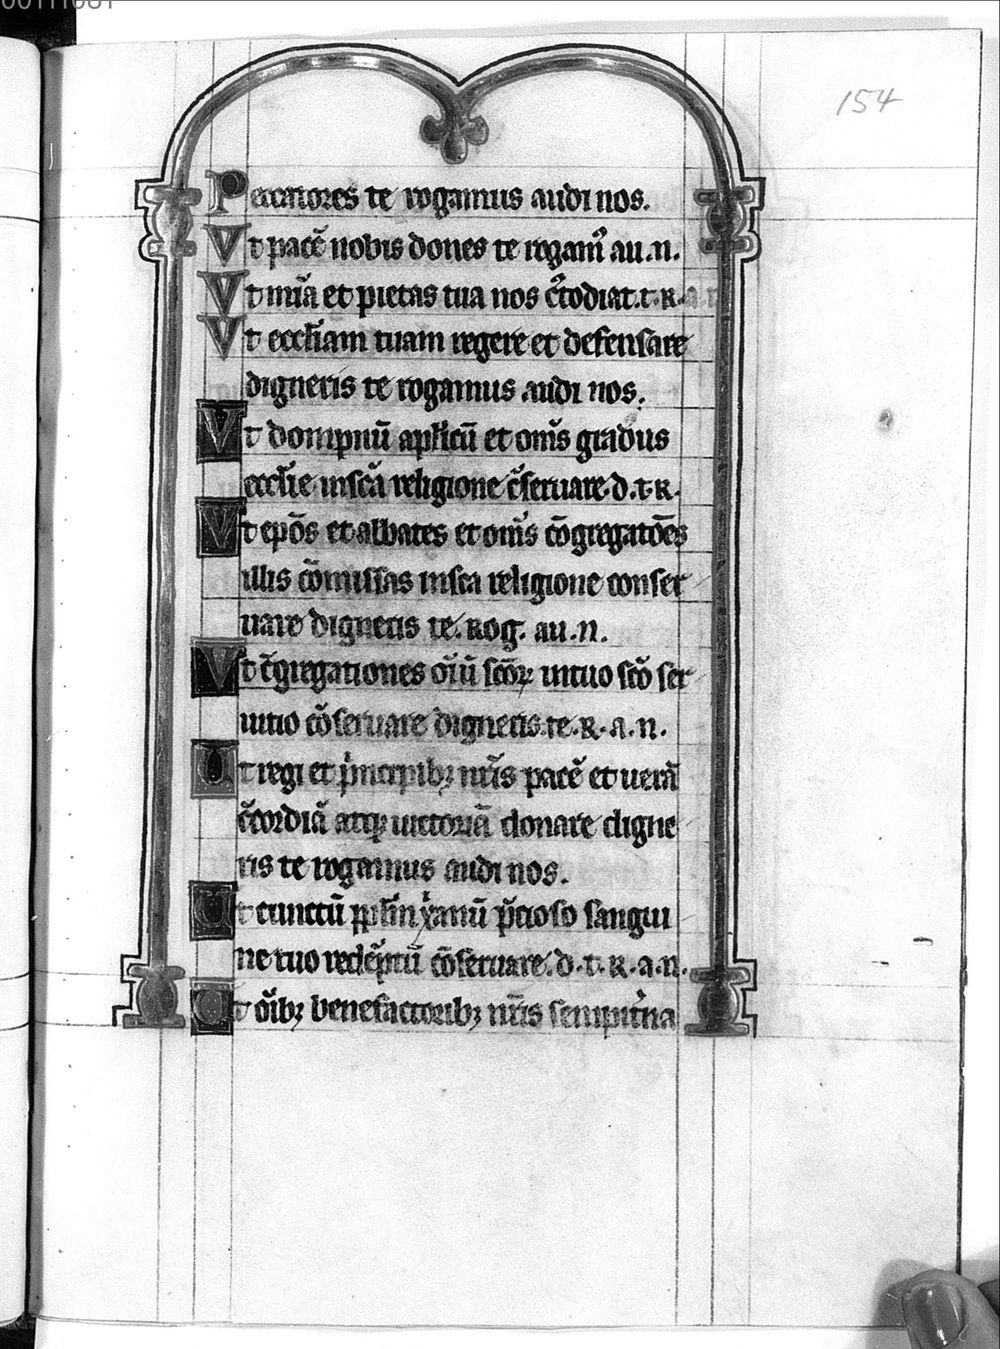 00111081
154
Peccatores te rogamus audi nos.
Vt pacē nobis dones te rogam᷒ au.n.
Vt mīa et pietas tua nos c᷒todiat.t.R.a.n
Vt eccl̄iam tuam regere et defensare
digneris te rogamus audi nos.
Vt dompnū apl̄icū et om̄s gradus
eccl̄ie in sc̄a religione c̄seruare.d.t.R.
Vt ep̄os et abbates et om̄s cōgregatōes
illis cōmissas in sc̄a religione conser
uare digneris te.Rog. au.n.
Vt c̄gregationes oīū sc̄oꝝ in tuo sc̄o ser
uitio cōseruare digneris.te.R.a.n.
Ut regi et p̄ncipibꝫ nr̄is pacē et uerā
c̄cordiā atqꝫ uictoriā donare digne
ris te rogamus audi nos.
Ut cunctū pp̄lm xp̄anū p̄cioso sangui
ne tuo redēptū cōseruare.d.t.R.a.n.
Ut oībꝫ benefactoribꝫ nr̄is sempit̄na